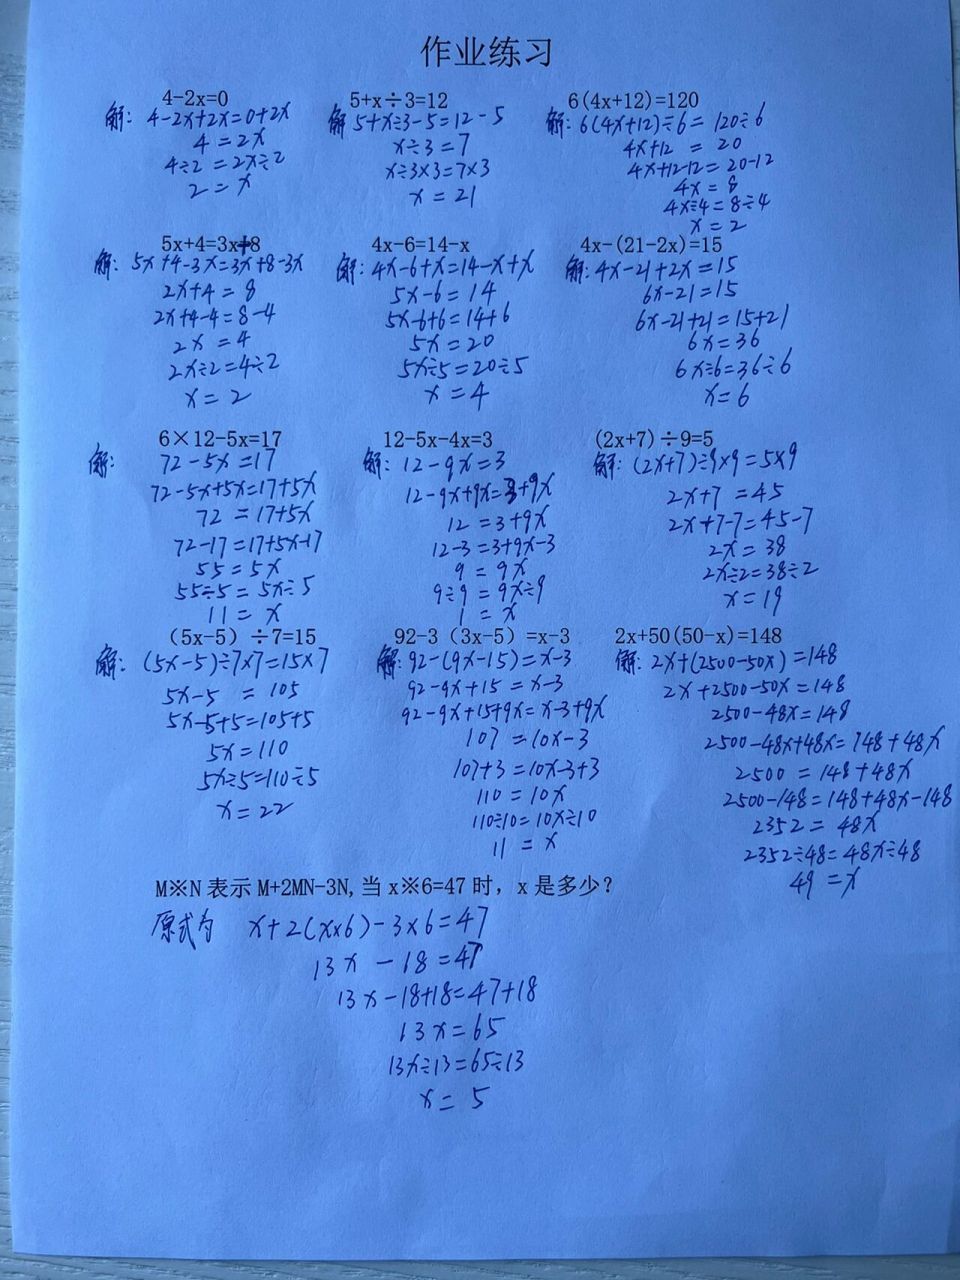 作业练习
4-2x=0
解: 4-2x+2x=0+2x
4=2x
4÷2=2x÷2
2=x
5+x÷3=12
解 5+x÷3-5=12-5
x÷3=7
x÷3×3=7×3
x=21
6(4x+12)=120
解: 6(4x+12)÷6=120÷6
4x+12=20
4x+12-12=20-12
4x=8
4x÷4=8÷4
x=2
5x+4=3x+8
解: 5x+4-3x=3x+8-3x
2x+4=8
2x+4-4=8-4
2x=4
2x÷2=4÷2
x=2
4x-6=14-x
解: 4x-6+x=14-x+x
5x-6=14
5x-6+6=14+6
5x=20
5x÷5=20÷5
x=4
4x-(21-2x)=15
解: 4x-21+2x=15
6x-21=15
6x-21+21=15+21
6x=36
6x÷6=36÷6
x=6
6×12-5x=17
解: 72-5x=17
72-5x+5x=17+5x
72=17+5x
72-17=17+5x-17
55=5x
55÷5=5x÷5
11=x
12-5x-4x=3
解: 12-9x=3
12-9x+9x=3+9x
12=3+9x
12-3=3+9x-3
9=9x
9÷9=9x÷9
1=x
(2x+7)÷9=5
解: (2x+7)÷9×9=5×9
2x+7=45
2x+7-7=45-7
2x=38
2x÷2=38÷2
x=19
（5x-5）÷7=15
解: (5x-5)÷7×7=15×7
5x-5=105
5x-5+5=105+5
5x=110
5x÷5=110÷5
x=22
92-3（3x-5）=x-3
解: 92-(9x-15)=x-3
92-9x+15=x-3
92-9x+15+9x=x-3+9x
107=10x-3
107+3=10x-3+3
110=10x
110÷10=10x÷10
11=x
2x+50(50-x)=148
解: 2x+(2500-50x)=148
2x+2500-50x=148
2500-48x=148
2500-48x+48x=148+48x
2500=148+48x
2500-148=148+48x-148
2352=48x
2352÷48=48x÷48
49=x
M※N 表示 M+2MN-3N,当 x※6=47 时，x 是多少？
原式为 x+2(x×6)-3×6=47
13x-18=47
13x-18+18=47+18
13x=65
13x÷13=65÷13
x=5